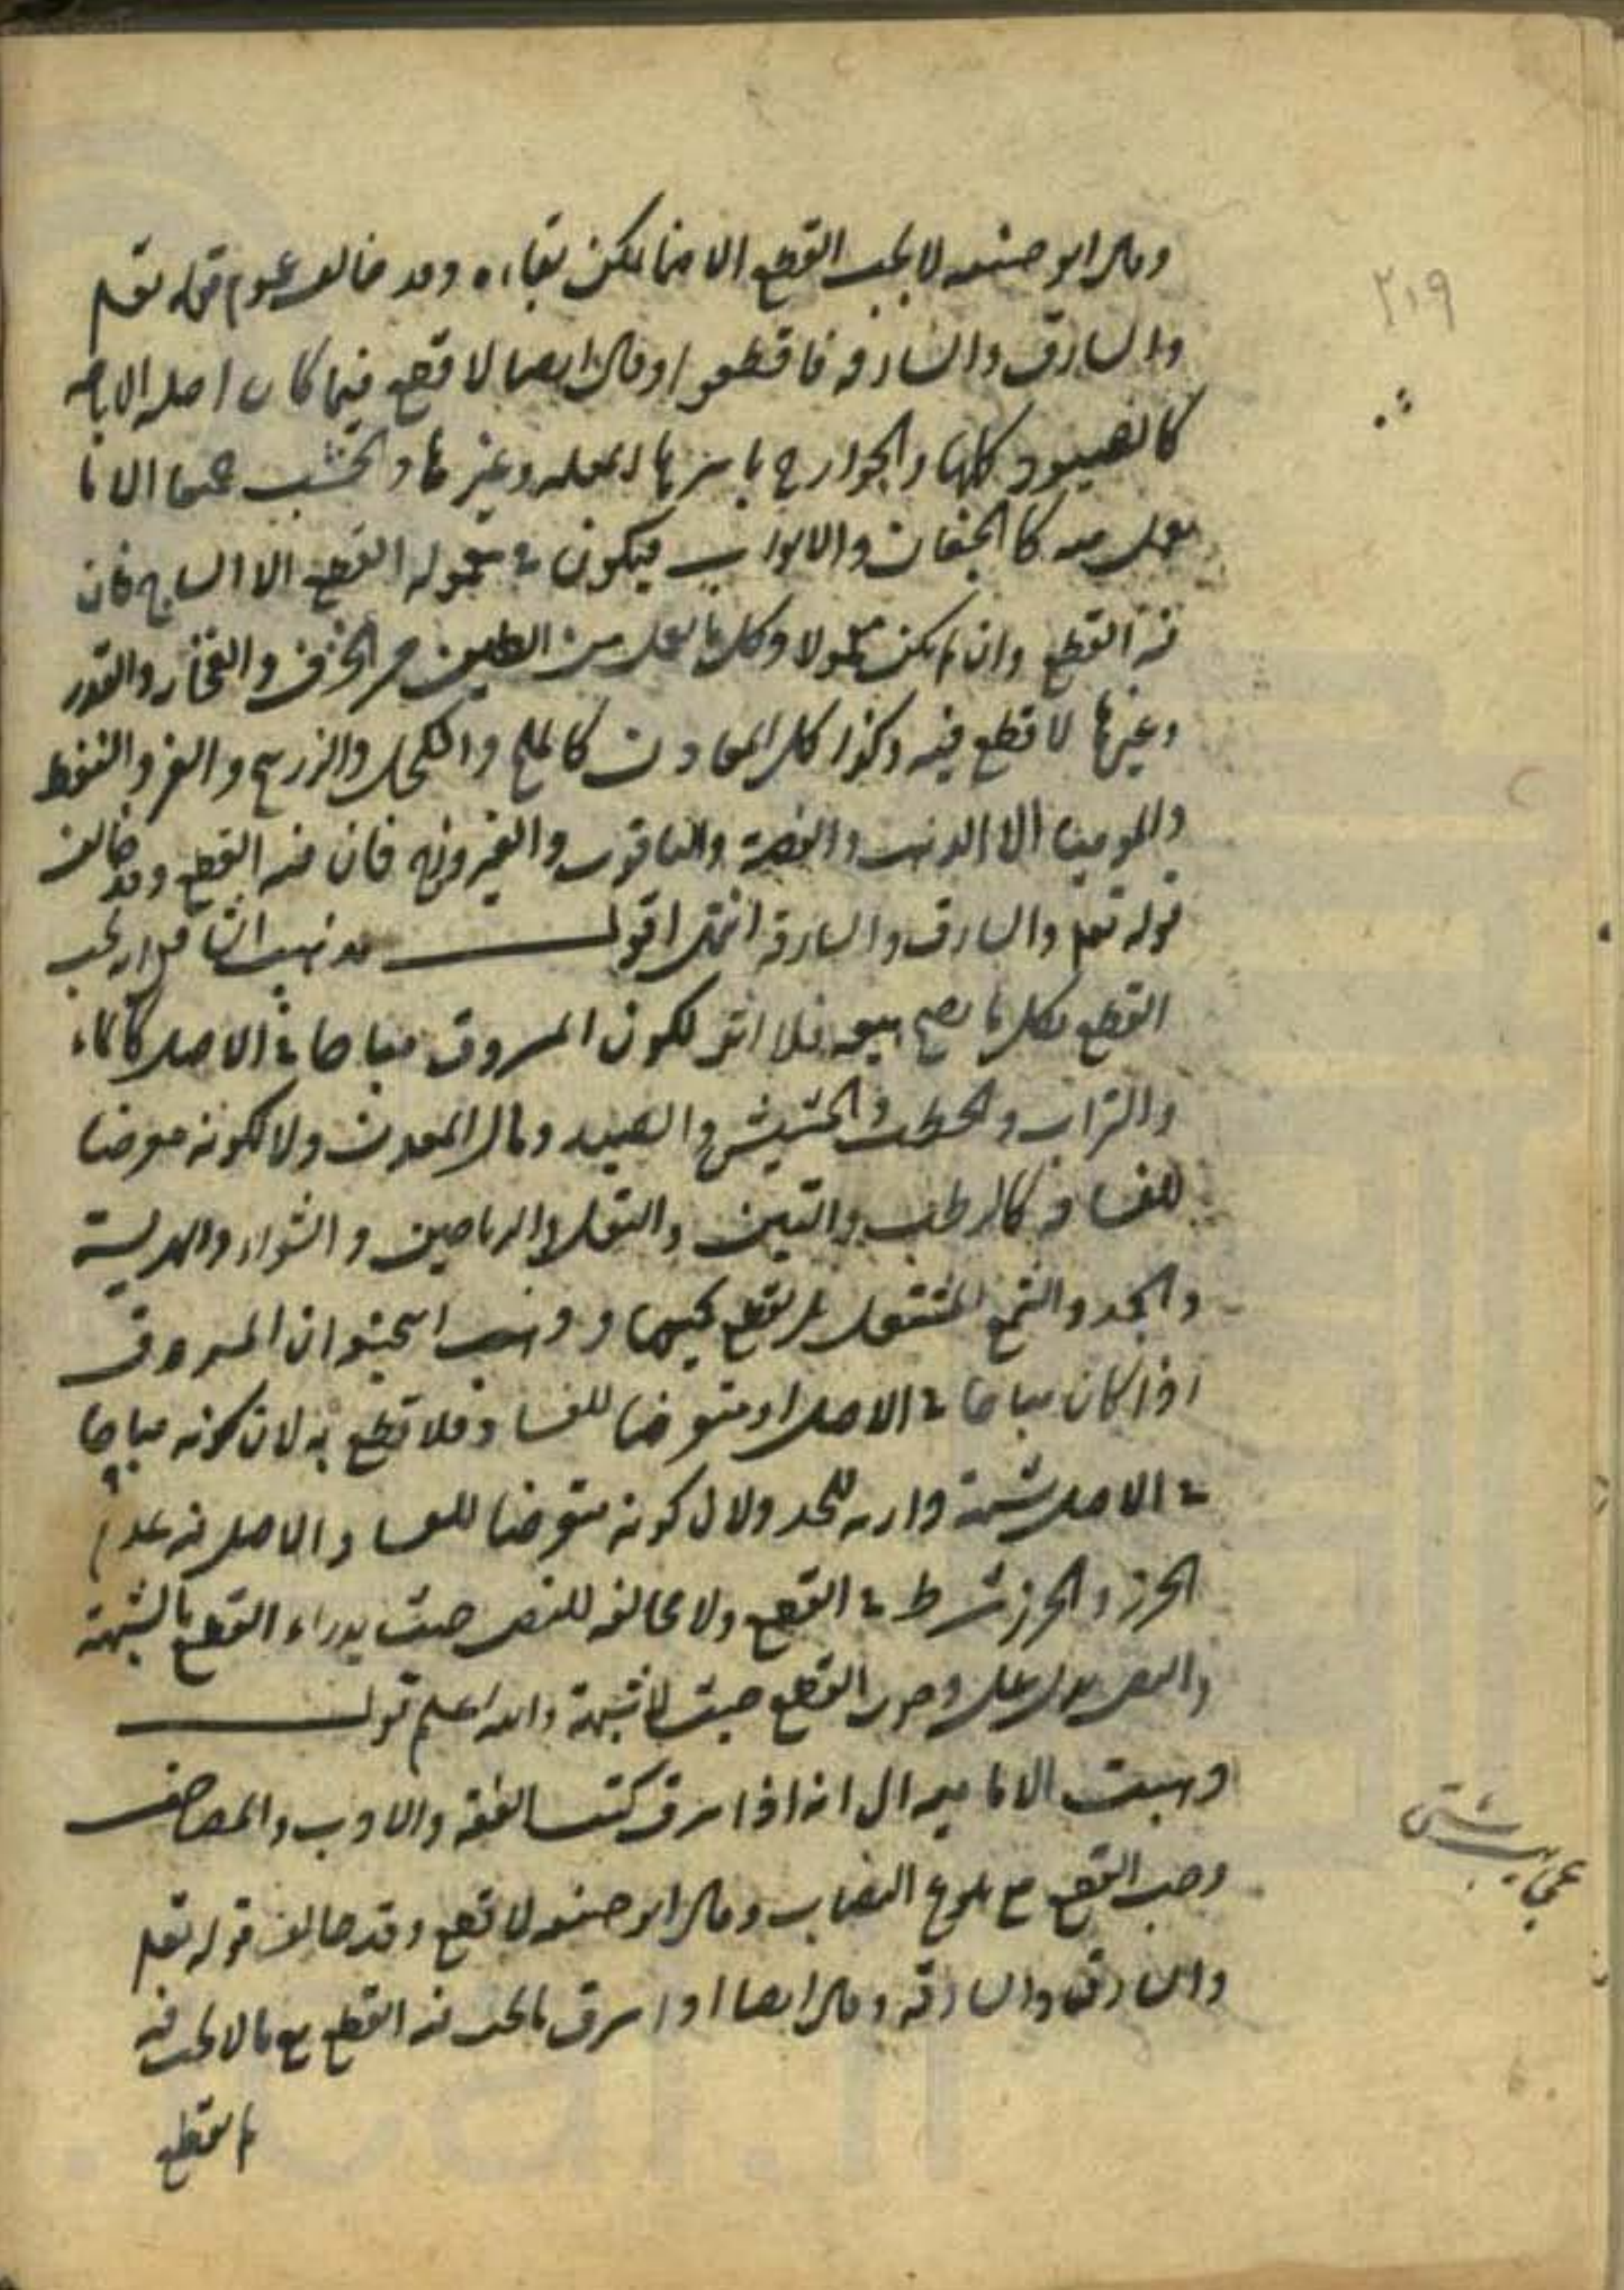 وقال ابو حنيفه لا يجب القطع الا فيما يمكن بقاءه وقد خالف عموم قوله تعلم
والسارق والسارقه فاقطعوا وقال ايضا لا قطع فيما كان اصله الاباحه
كالصيود كلها والجوارح باسرها المعلمه وغيرها والخشب جميعا الا ما
يعمل منه كالجفان والابواب فيكون في معموله القطع الا الساج فان
فيه القطع وان لم يكن معمولا وكل ما يعمل من الطين من الخزف والفخار والقدر
وغيرها لا قطع فيه وكذا كل المعادن كالملح والكحل والزرنيخ والقير والنفط
والموميا الا الذهب والفضة والياقوت والفيروزج فان فيه القطع وقد خالف
قوله تعلم والسارق والسارقة انتهى اقول مذهب الشافعي انه يجب
القطع بكل ما يصح بيعه فلا اثر لكون المسروق مباحا في الاصل كالماء
والتراب والحطب والحشيش والصيد ومال المعدن ولا لكونه معرضا
للفساد كالرطب والتين والبقل والرياحين والشواء والهريسة
والجمد والشمع المشتعل بل يقطع بجميعها وذهب ابحنيفه ان المسروق
اذا كان مباحا في الاصل او متعرضا للفساد فلا قطع به لان كونه مباحا
في الاصل شبهة دارئه للحد ولان كونه متعرضا للفساد الاصل فيه عدم
الحرز والحرز شرط في القطع ولا مخالفه للنص حيث يدراء القطع بالشبهة
والنص يدل على وجوب القطع حيث لا شبهة والله اعلم قول
ذهبت الاماميه الى انه اذا سرق كتب الفقه والادب والمصاحف
وجب القطع مع بلوغ النصاب وقال ابو حنيفه لا قطع وقد خالف قوله تعلم
والسارق والسارقه وقال ايضا اذا سرق ما يجب فيه القطع مع ما لا يجب فيه
لم يقطع
٢١٩